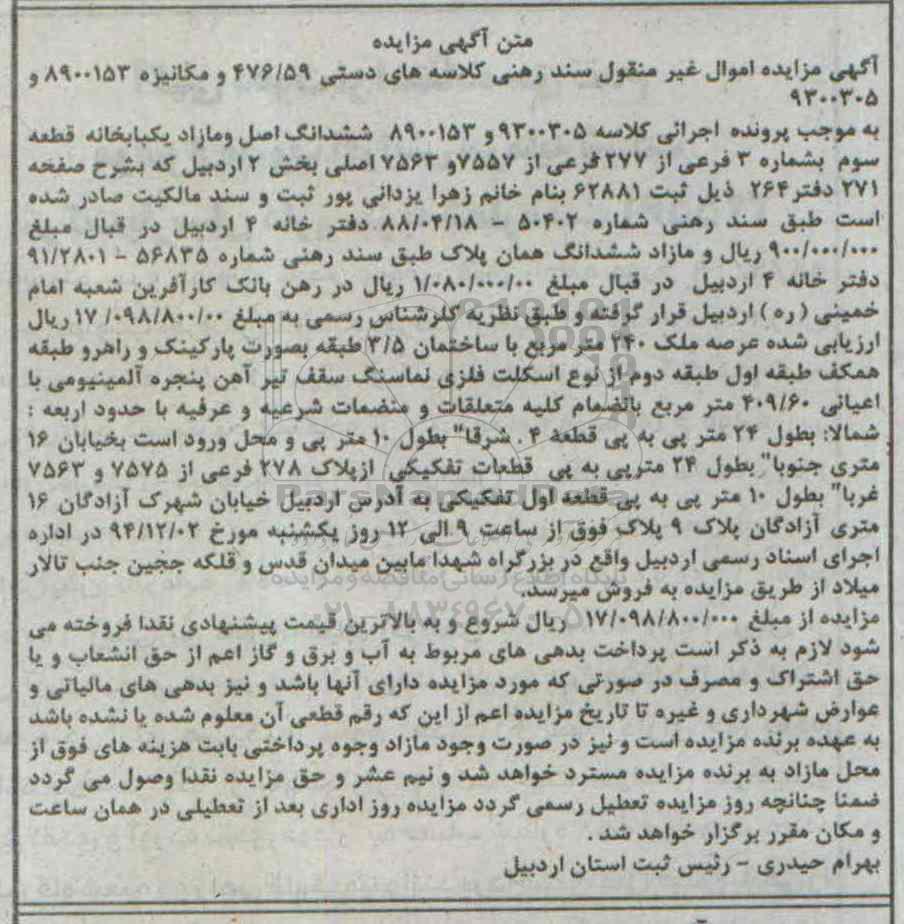 متن آگهی مزایده
آگهی مزایده اموال غیر منقول سند رهنی کلاسه های دستی ۴۷۶/۵۹ و مکانیزه ۸۹۰۰۱۵۳ و
۹۳۰۰۳۰۵
به موجب پرونده اجرائی کلاسه ۹۳۰۰۳۰۵ و ۸۹۰۰۱۵۳ ششدانگ اصل ومازاد یکبابخانه قطعه
سوم بشماره ۳ فرعی از ۲۷۷ فرعی از ۷۵۵۷و ۷۵۶۳ اصلی بخش ۲ اردبیل که بشرح صفحه
۲۷۱ دفتر۲۶۴ ذیل ثبت ۶۲۸۸۱ بنام خانم زهرا یزدانی پور ثبت و سند مالکیت صادر شده
است طبق سند رهنی شماره ۵۰۴۰۲ - ۸۸/۰۴/۱۸ دفتر خانه ۴ اردبیل در قبال مبلغ
۹۰۰/۰۰۰/۰۰۰ ریال و مازاد ششدانگ همان پلاک طبق سند رهنی شماره ۵۶۸۳۵ - ۹۱/۲۸۰۱
دفتر خانه ۴ اردبیل در قبال مبلغ ۱/۰۸۰/۰۰۰/۰۰ ریال در رهن بانک کارآفرین شعبه امام
خمینی ( ره ) اردبیل قرار گرفته و طبق نظریه کارشناس رسمی به مبلغ ۱۷/۰۹۸/۸۰۰/۰۰ ریال
ارزیابی شده عرصه ملک ۲۴۰ متر مربع با ساختمان ۳/۵ طبقه بصورت پارکینک و راهرو طبقه
همکف طبقه اول طبقه دوم از نوع اسکلت فلزی نماسنگ سقف تیر آهن پنجره آلمینیومی با
اعیانی ۴۰۹/۶۰ متر مربع بانضمام کلیه متعلقات و منضمات شرعیه و عرفیه با حدود اربعه :
شمالا: بطول ۲۴ متر پی به پی قطعه ۴ . شرقا" بطول ۱۰ متر پی و محل ورود است بخیابان ۱۶
متری جنوبا" بطول ۲۴ مترپی به پی قطعات تفکیکی ازپلاک ۲۷۸ فرعی از ۷۵۷۵ و ۷۵۶۳
غربا" بطول ۱۰ متر پی به پی قطعه اول تفکیکی به آدرس اردبیل خیابان شهرک آزادگان ۱۶
متری آزادگان پلاک ۹ پلاک فوق از ساعت ۹ الی ۱۲ روز یکشنبه مورخ ۹۴/۱۲/۰۲ در اداره
اجرای اسناد رسمی اردبیل واقع در بزرگراه شهدا مابین میدان قدس و فلکه ججین جنب تالار
میلاد از طریق مزایده به فروش میرسد.
مزایده از مبلغ ۱۷/۰۹۸/۸۰۰/۰۰۰ ریال شروع و به بالاترین قیمت پیشنهادی نقدا فروخته می
شود لازم به ذکر است پرداخت بدهی های مربوط به آب و برق و گاز اعم از حق انشعاب و یا
حق اشتراک و مصرف در صورتی که مورد مزایده دارای آنها باشد و نیز بدهی های مالیاتی و
عوارض شهرداری و غیره تا تاریخ مزایده اعم از این که رقم قطعی آن معلوم شده یا نشده باشد
به عهده برنده مزایده است و نیز در صورت وجود مازاد وجوه پرداختی بابت هزینه های فوق از
محل مازاد به برنده مزایده مسترد خواهد شد و نیم عشر و حق مزایده نقدا وصول می گردد
ضمنا چنانچه روز مزایده تعطیل رسمی گردد مزایده روز اداری بعد از تعطیلی در همان ساعت
و مکان مقرر برگزار خواهد شد .
بهرام حیدری - رئیس ثبت استان اردبیل